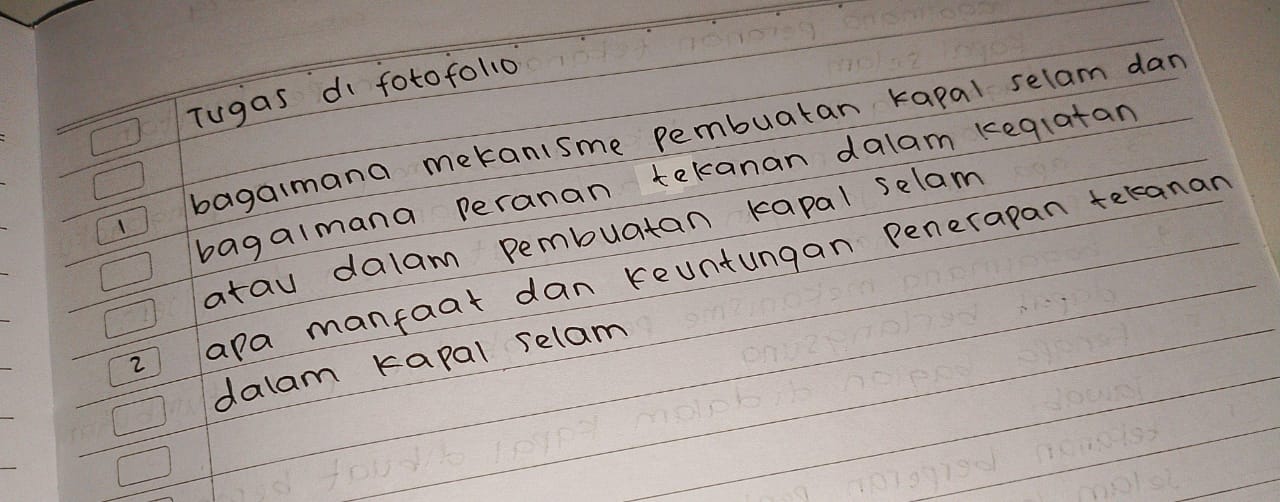 Tugas di fotofolio
bagaimana mekanisme pembuatan kapal selam dan
1 bagaimana peranan tekanan dalam kegiatan
atau dalam pembuatan kapal selam
2 apa manfaat dan keuntungan penerapan tekanan
dalam kapal selam